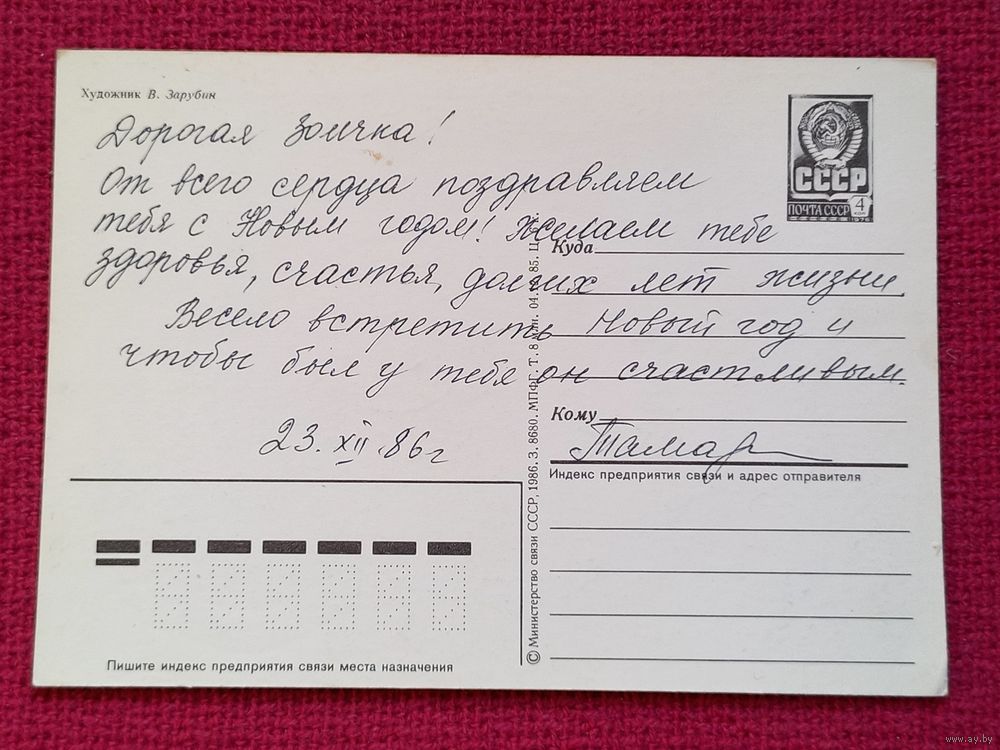 Художник В. Зарубин
Дорогая Зоичка!
От всего сердца поздравляем
тебя с Новым годом! Желаем тебе
здоровья, счастья, долгих лет жизни.
Весело встретить Новый год и
чтобы был у тебя он счастливым.
23.XII.86г
СССР
ПОЧТА СССР 4
КОП
1976
Куда
Кому
Тамара
Индекс предприятия связи и адрес отправителя
© Министерство связи СССР, 1986. З. 8680. МПФГ. Т. 8 млн. 04. 85. Ц.
Пишите индекс предприятия связи места назначения
www.ay.by